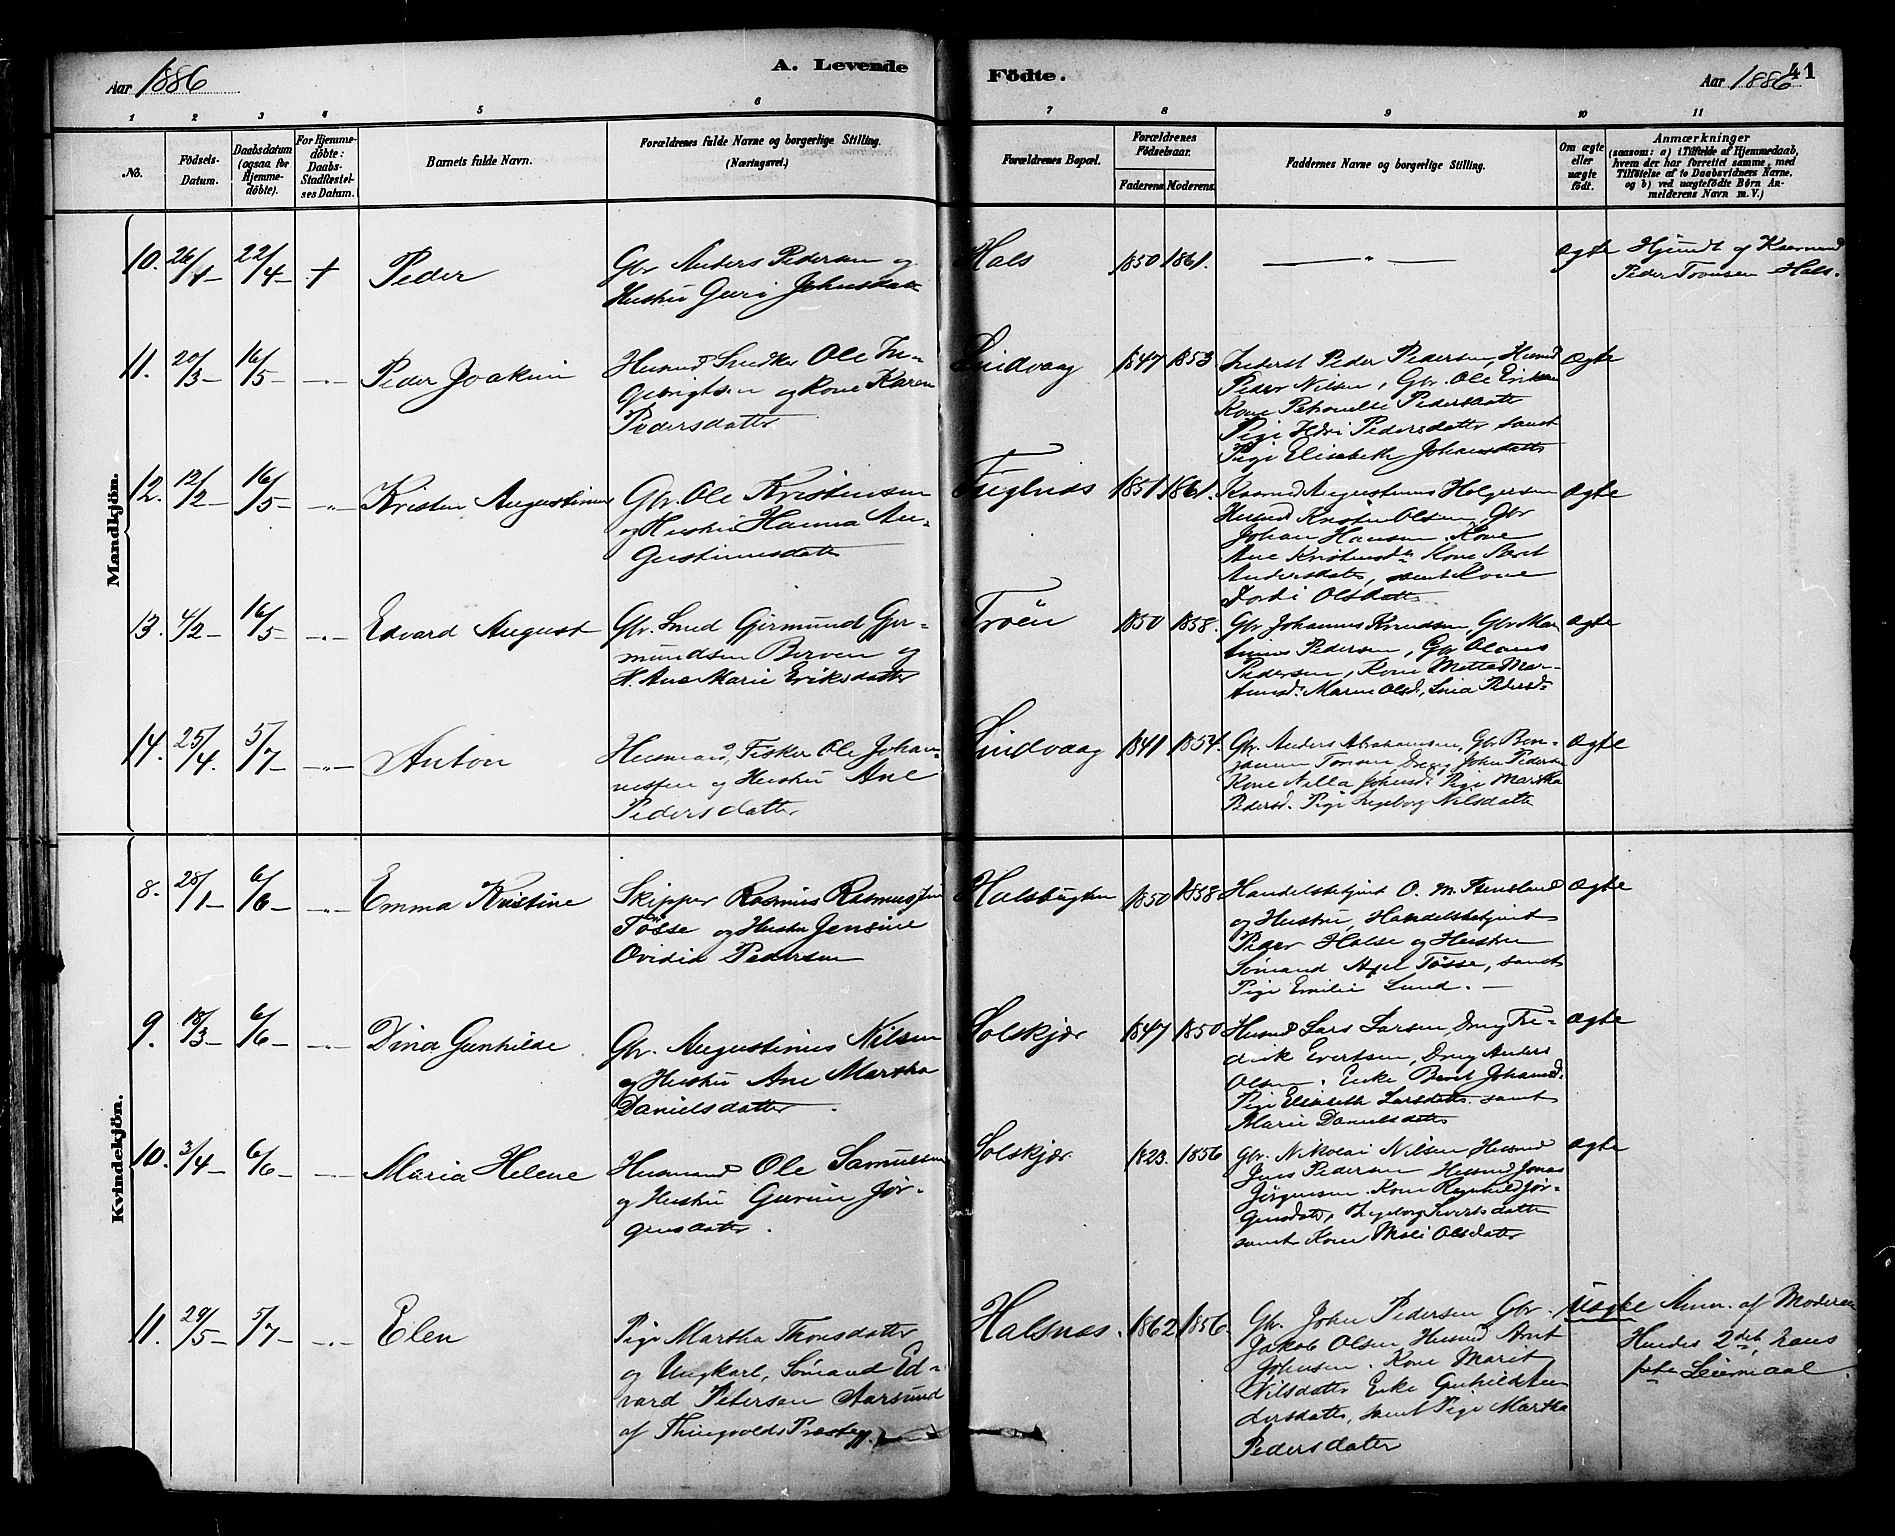 Aar 1886
A. Levende
Födte.
Aar 1886
41
1 2 3 4 5 6 7 8 9 10 11
No.
Födsels-
Datum.
Daabsdatum
(ogsaa for
Hjemme-
döbte).
For Hjemme-
döbte:
Daabs-
Stadfæstel-
ses Datum.
Barnets fulde Navn.
Forældrenes fulde Navne og borgerlige Stilling.
(Næringsvei.)
Forældrenes Bopæl.
Forældrenes
Födselsaar.
Faderens. Moderens.
Faddernes Navne og borgerlige Stilling.
Om ægte
eller
uægte
födt.
Anmærkninger
(saasom: a) i Tilfælde af Hjemmedaab,
hvem der har forrettet samme, med
Tilföielse af to Daabsvidners Navne,
og b) ved uægtefödte Börn An-
melderens Navn m. V.)
Mandkjön.
10. 26/1 22/4 + Peder
Gbr Anders Pedersen og
Hustru Guri Johnsdatter
Hals 1850 1861. — " — ægte
Hjemdt af Kaarmand
Peder Tronsen Hals.
11. 20/3 16/5 Peder Joakim
Husmd Snedker Ole In-
gebrigtsen og Kone Karen
Pedersdatter
Lindvaag 1847 1853
Inderst Peder Pedersen, Husmd
Peder Nilsen, Gbr. Ole Eriksen
Kone Petronelle Pedersdatter
Pige Pedersdatter samt
Pige Elisabeth Johansdatter
Ægte
12. 12/2 16/5 Kristen Augustinus
Gbr. Ole Kristensen
og Hustru Hanna Au-
gustinusdatter
Fuglnæs 1851 1861.
Kaarmd Augustinus Holgersen
Husmd Kristen Olsen, Gbr
Johan Hansen. Kone
Ane Kristensd. Kone Beret
Andersdatter, samt Kone
Olsdatter
Ægte
13. 4/2 16/5 Edvard August
Gbr. Smed Germund Ger-
mundsen Berven og
H. Ane Marie Eriksdatter
Troen 1850 1858.
Gbr Johannes Knudsen, Gbr Mar
tinus Pedersen, Gbr Olaus
Pedersen, Kone Mette Mar-
tinusd. Marie Olsd, Pedersd.
Ægte
14. 25/4 5/7 Anton
Husmand, Fisker Ole Johan-
nessen og Hustru Ane
Pedersdatter
Lindvaag 1841 1854.
Gbr. Anders Abrahamsen, Gbr Ben-
jamin Tonsen Dreng John Pedersen
Kone Nilla Johnsd. Pige Martha
Pedersd. Pige Ingeborg Nilsdatter
Ægte
Kvindekjön.
8. 28/1 6/6 Emma Kristine
Skipper Rasmus Rasmussen
Tösse og Hustru Jensine
Ovidia Pedersen
Halsbugten 1850 1858
Handelsbetjent O. M. Stensland
og Hustru, Handelsbetjent
Peder Halse og Hustru
Sömand Axel Tösse, samt
Pige Emilie Lund.
Ægte
9. 18/3 6/6 Dina Gunhilde
Gbr. Augustinus Nilsen
og Hustru Ane Martha
Danielsdatter.
Solskjær 1847 1850
Husmd Lars Larsen, Dreng Fre-
drik Evertsen, Dreng Anders
Olsen. Enke Beret Johansd.
Pige Elisabeth Larsdatter samt
Marie Danielsdatter
Ægte
10. 3/4 6/6 Maria Helene
Husmand Ole Samuelsen
og Hustru Gurine Jör-
gensdatter.
Solskjær 1823. 1856
Gbr. Nikolai Nilsen Husmd
Jens Pedersen Husmd Jonas
Jörgensen. Kone Ragnhild Jör-
gensdatter, Ingeborg Evertsdatter
samt Kone Mali Olsdatter
Ægte
11. 29/5 5/7 Elen
Pige Martha Thonsdatter
og Ungkarl, Sömand Ed-
vard Petersen Aarsund
af Thingvolds Præstegj.
Halsnæs. 1862 1856.
Gbr. John Pedersen Gbr.
Jakob Olsen Husmd Arnt
Johnsen. Kone Marit
Nilsdatter Enke Gunhild An
dersdatter, samt Pige Martha
Pedersdatter
Uægte
Anm. af Moderen
Hendes 2det, hans
1ste Leiermaal.